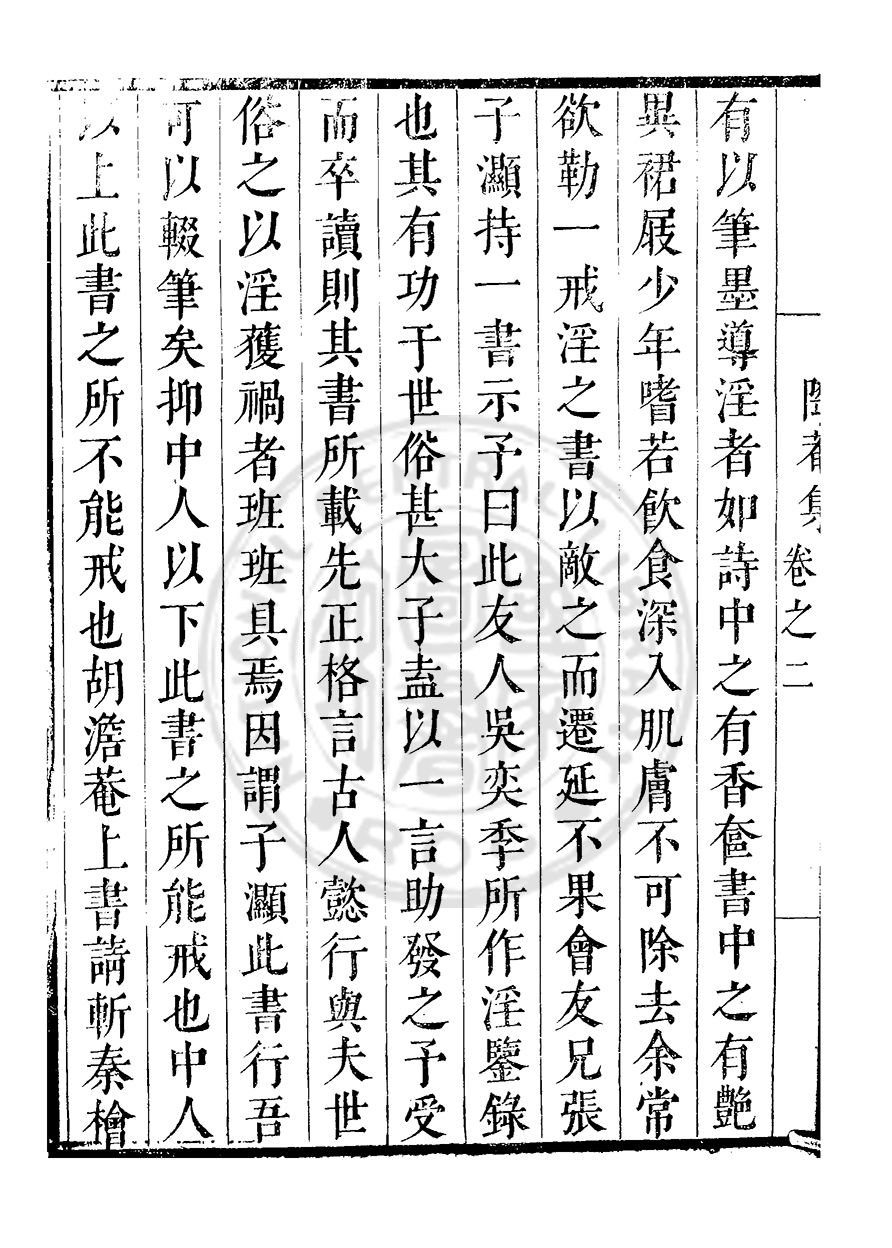 集卷之二
有以筆墨導淫者如詩中之有香奩書中之有艶
異裙屐少年嗜若飲食深入肌膚不可除去余常
欲勒一戒淫之書以敵之而遷延不果會友兄張
子灝持一書示予曰此友人吳奕季所作淫鑒錄
也其有功于世俗甚大子盍以一言助發之予受
而卒讀則其書所載先正格言古人懿行與夫世
俗之以淫獲禍者班班具焉因謂子灝此書行吾
可以輟筆矣抑中人以下此書之所能戒也中人
以上此書之所不能戒也胡澹菴上書請斬秦檜